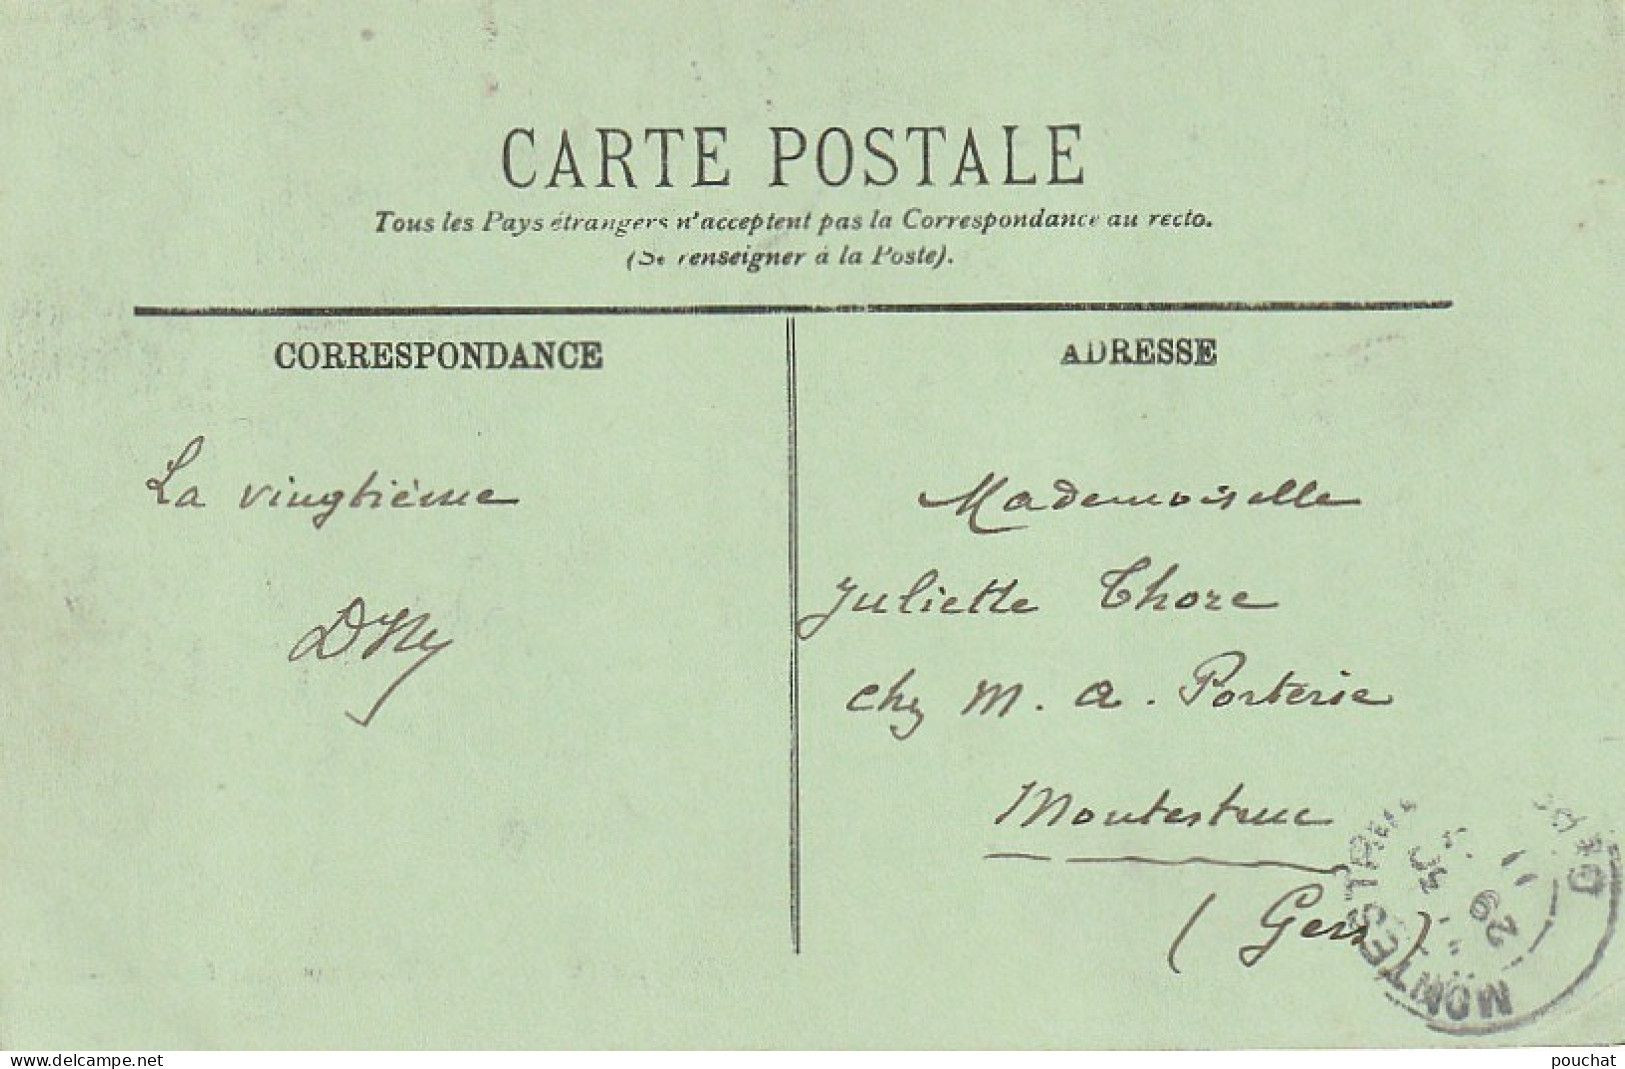 CARTE POSTALE
Tous les Pays étrangers n'acceptent pas la Correspondance au recto.
(Se renseigner à la Poste).
CORRESPONDANCE
ADRESSE
La vingtième
Mademoiselle
Juliette Thore
chez M. A. Porterie
Montestruc
(Gers)
MONTESTRUC
29
www.delcampe.net
pouchat